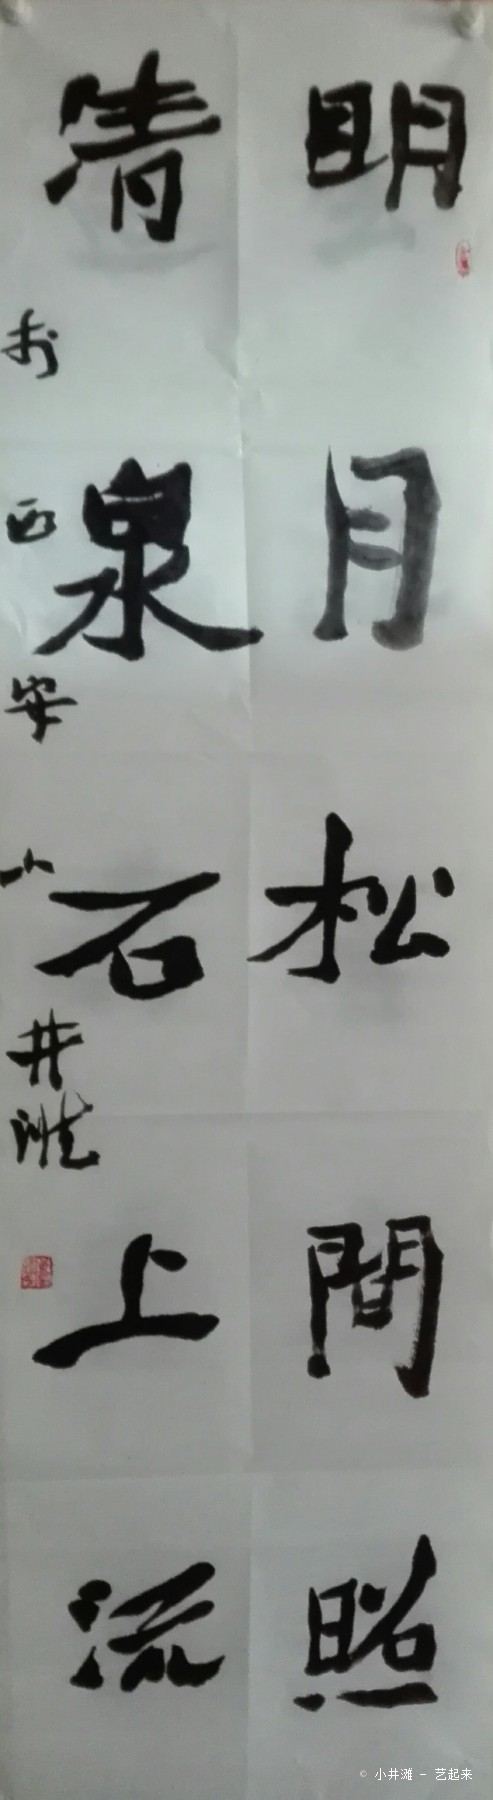 明月松間照
清泉石上流
於西安小井滩
© 小井滩 - 艺起来